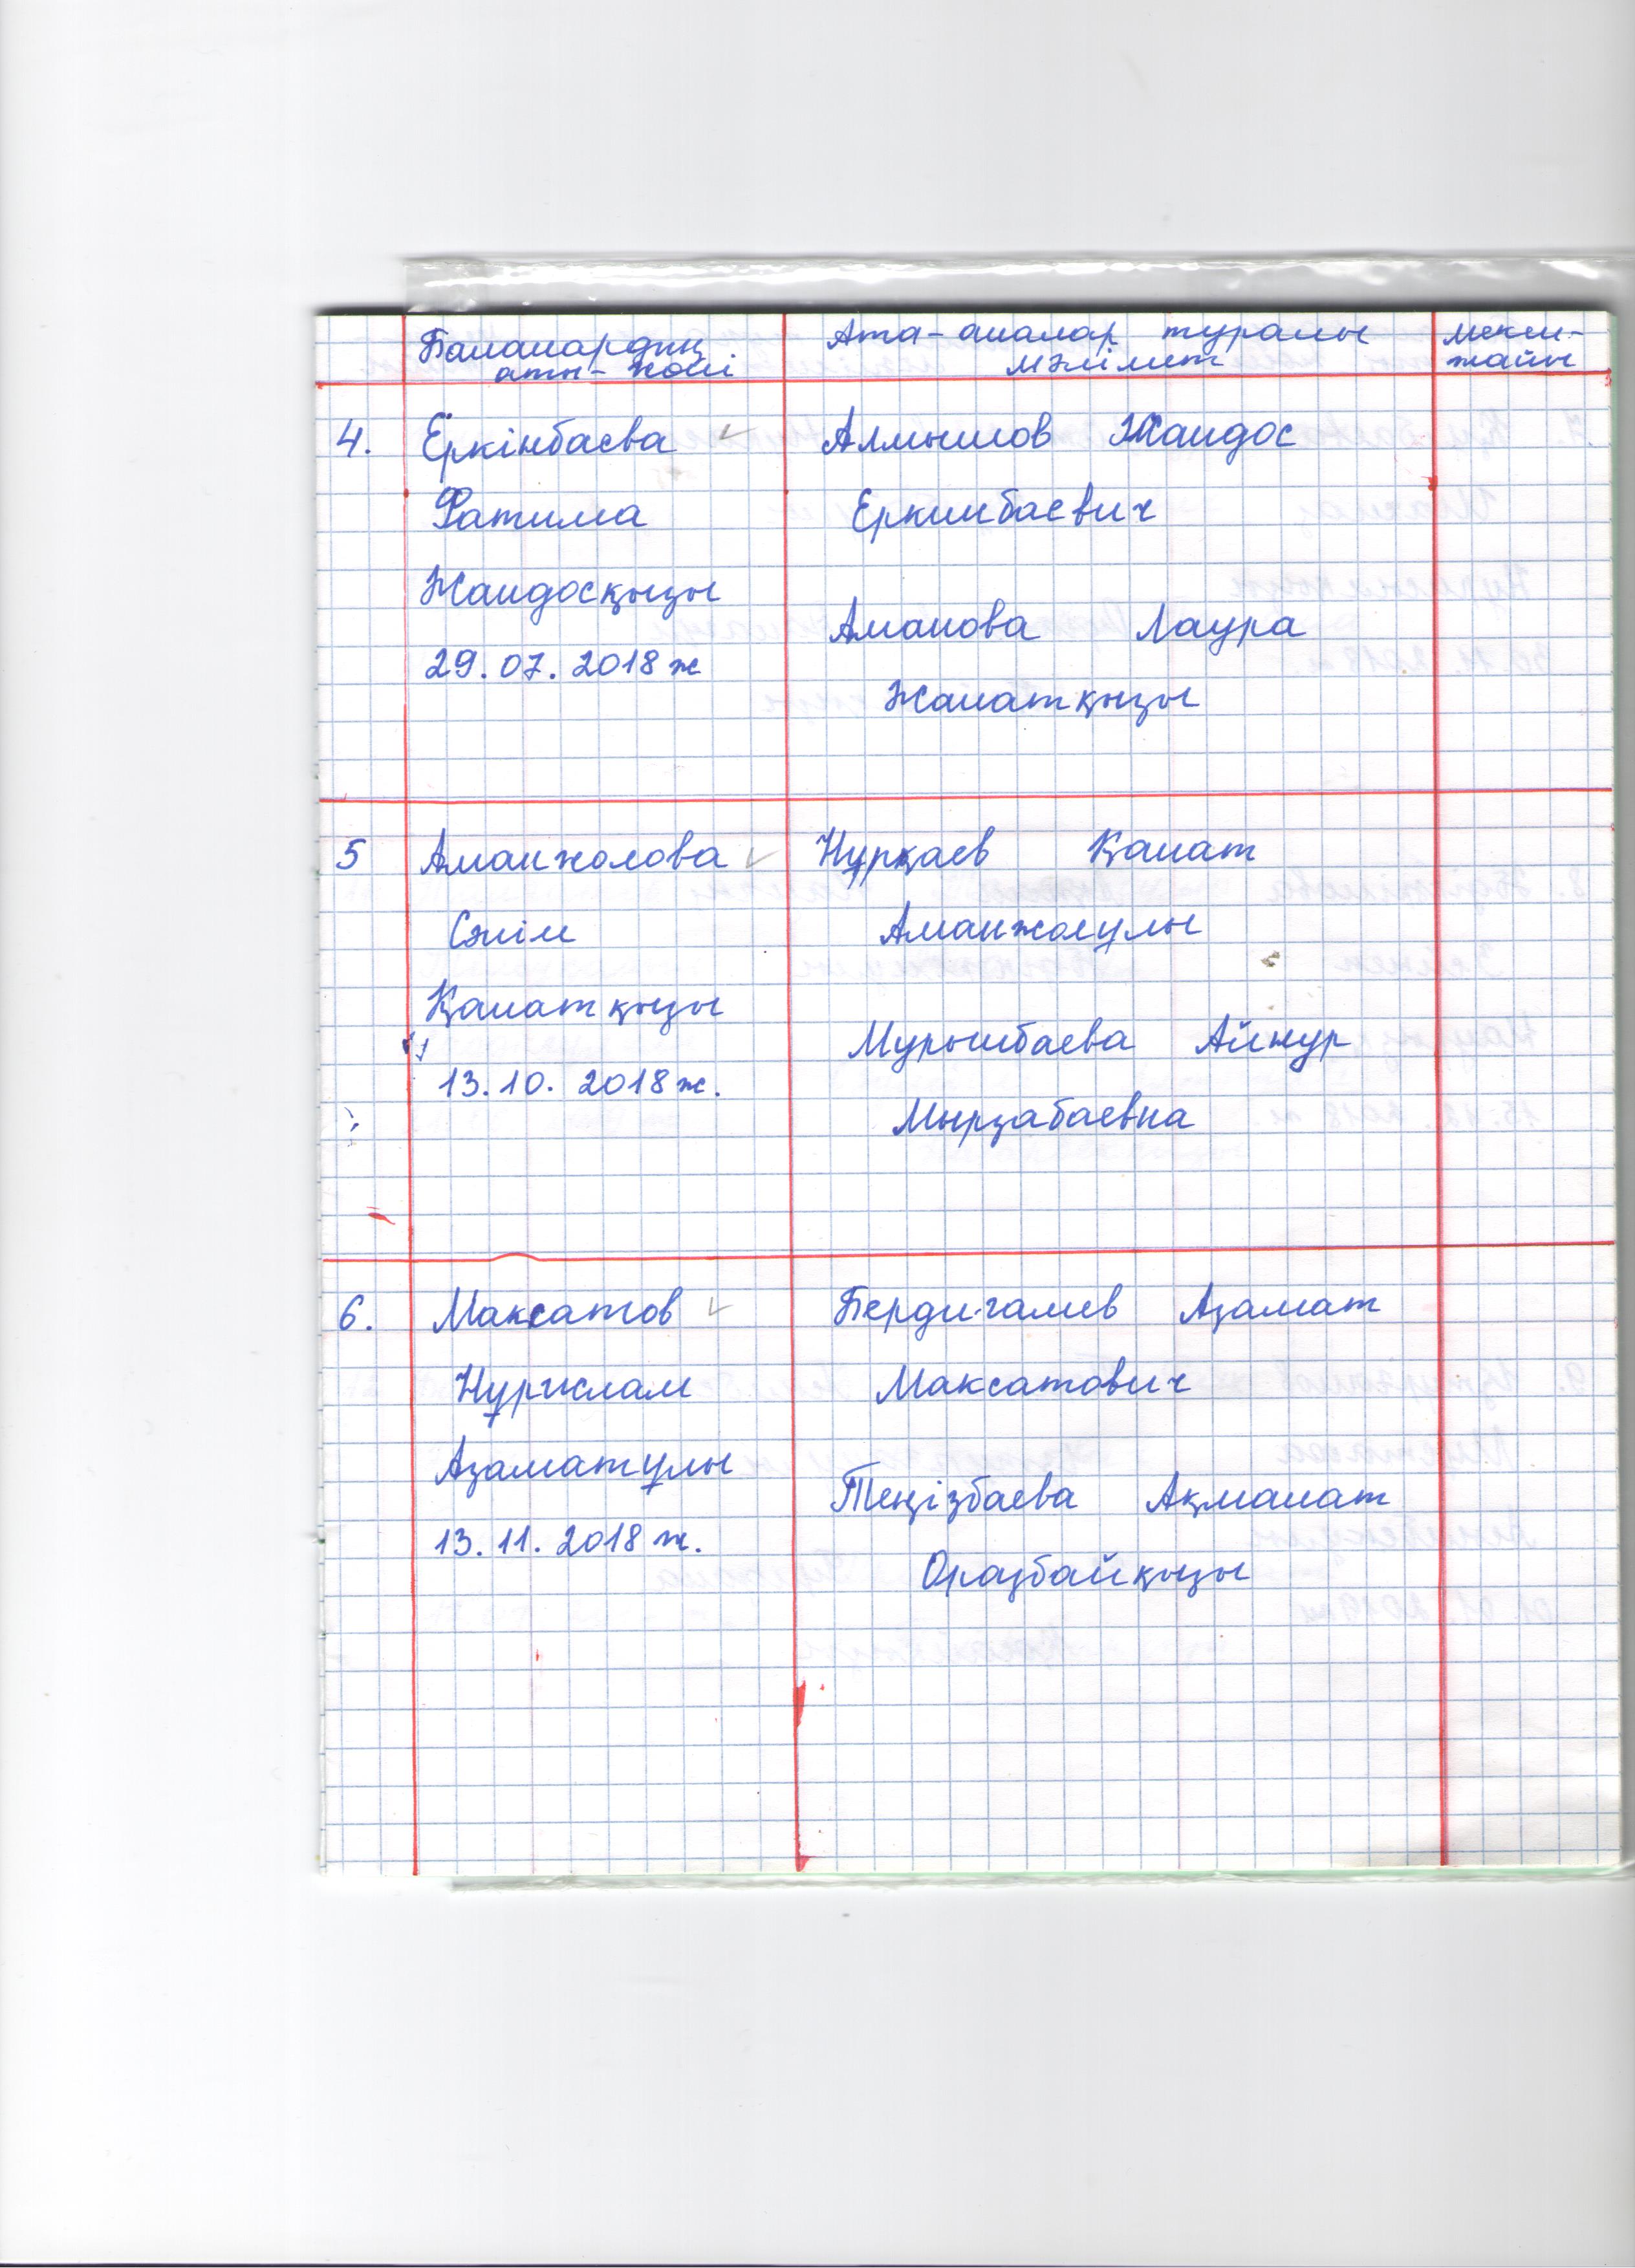 Балалардың аты-жөні
Ата-аналар туралы мәлімет
мекен-жайы
4.
Еркінбаева
Фатима
Жандосқызы
29.07.2018ж
Алмышов Жандос
Еркинбаевич
Аманова Лаура
Жанатқызы
5
Аманжолова
Сәнім
Қанатқызы
13.10.2018ж.
Нұрқаев Қанат
Аманжолұлы
Мурынбаева Айнур
Мырзабаевна
6.
Максатов
Нұрислам
Азаматұлы
13.11.2018ж.
Бердигалиев Азамат
Максатович
Теңізбаева Ақманат
Оразбайқызы